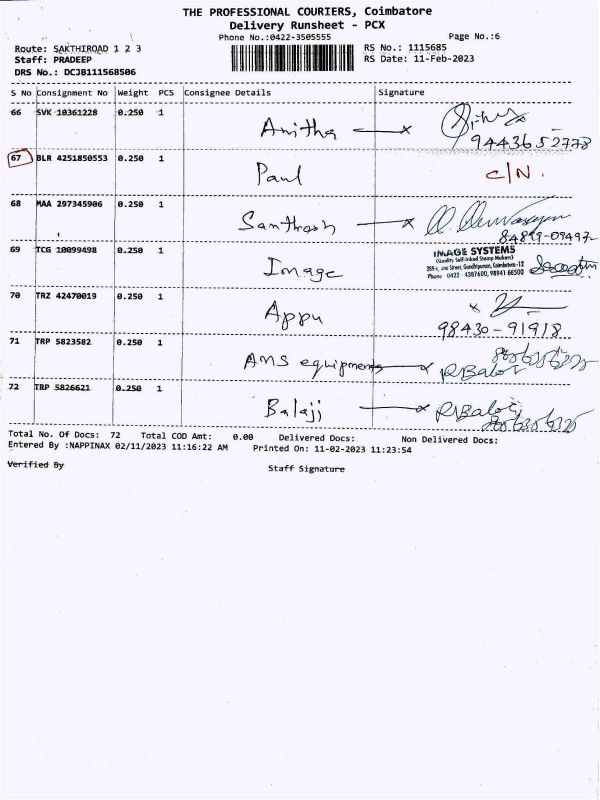 THE PROFESSIONAL COURIERS, Coimbatore
Delivery Runsheet - PCX
Phone No.:0422-3505555
Page No.:6
Route: SAKTHIROAD 1 2 3
RS No.: 1115685
Staff: PRADEEP
RS Date: 11-Feb-2023
DRS No.: DCJB111568506
S No Consignment No Weight PCS Consignee Details Signature
66 SVK 10361228 0.250 1 Anitha
9443652778
67 BLR 4251850553 0.250 1 Paul C/N.
68 MAA 297345906 0.250 1 Santhosh
84899-09497
69 TCG 10099498 0.250 1 Image
IMAGE SYSTEMS
(Quality Self-Inked Stamp Makers)
Gandhipuram, Coimbatore -12
Phone 0422 4387600, 98941 66500
70 TRZ 42470019 0.250 1 Appu
98430-91918
71 TRP 5823582 0.250 1 AMS equipments R Balaji
72 TRP 5826621 0.250 1 Balaji R Balaji
Total No. Of Docs: 72 Total COD Amt: 0.00 Delivered Docs: Non Delivered Docs:
Entered By :NAPPINAX 02/11/2023 11:16:22 AM Printed On: 11-02-2023 11:23:54
Verified By
Staff Signature